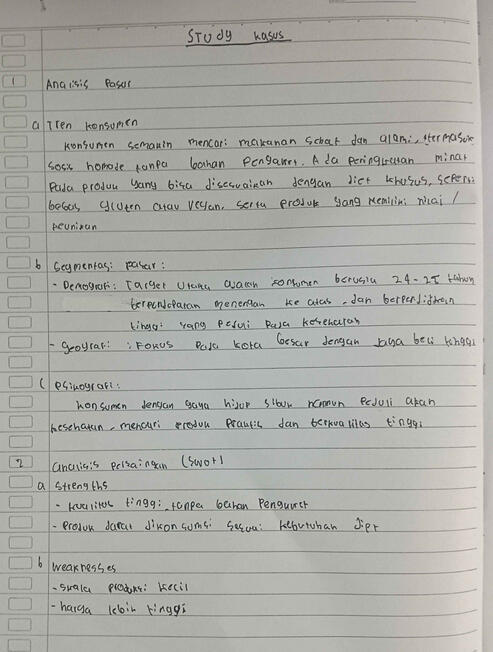 Study kasus
1 Analisis Pasar
a Tren konsumen
konsumen semakin mencari makanan sehat dan alami, termasuk
sosis homade tanpa bahan pengawet. Ada peningkatan minat
pada produk yang bisa disesuaikan dengan diet khusus, seperti
bebas gluten atau vegan, serta produk yang memiliki nilai /
keunikan
b Segmentasi pasar :
- Demografi : Target utama adalah konsumen berusia 24-25 tahun
berpendapatan menengah ke atas, dan berpendidikan
tinggi yang peduli pada kesehatan
- Geografi : Fokus pada kota besar dengan daya beli tinggi
c Psikografi :
konsumen dengan gaya hidup sibuk namun peduli akan
kesehatan, mencari produk praktis dan berkualitas tinggi
2 analisis persaingan (swot)
a strengths
- kualitas tinggi, tanpa bahan pengawet
- produk dapat dikonsumsi sesuai kebutuhan diet
b weaknesses
- skala produksi kecil
- harga lebih tinggi